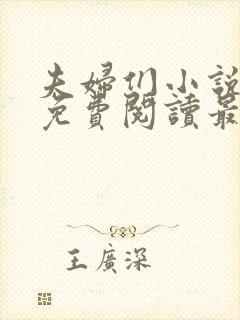 夫婦们小說
免費閱讀最
王廣深